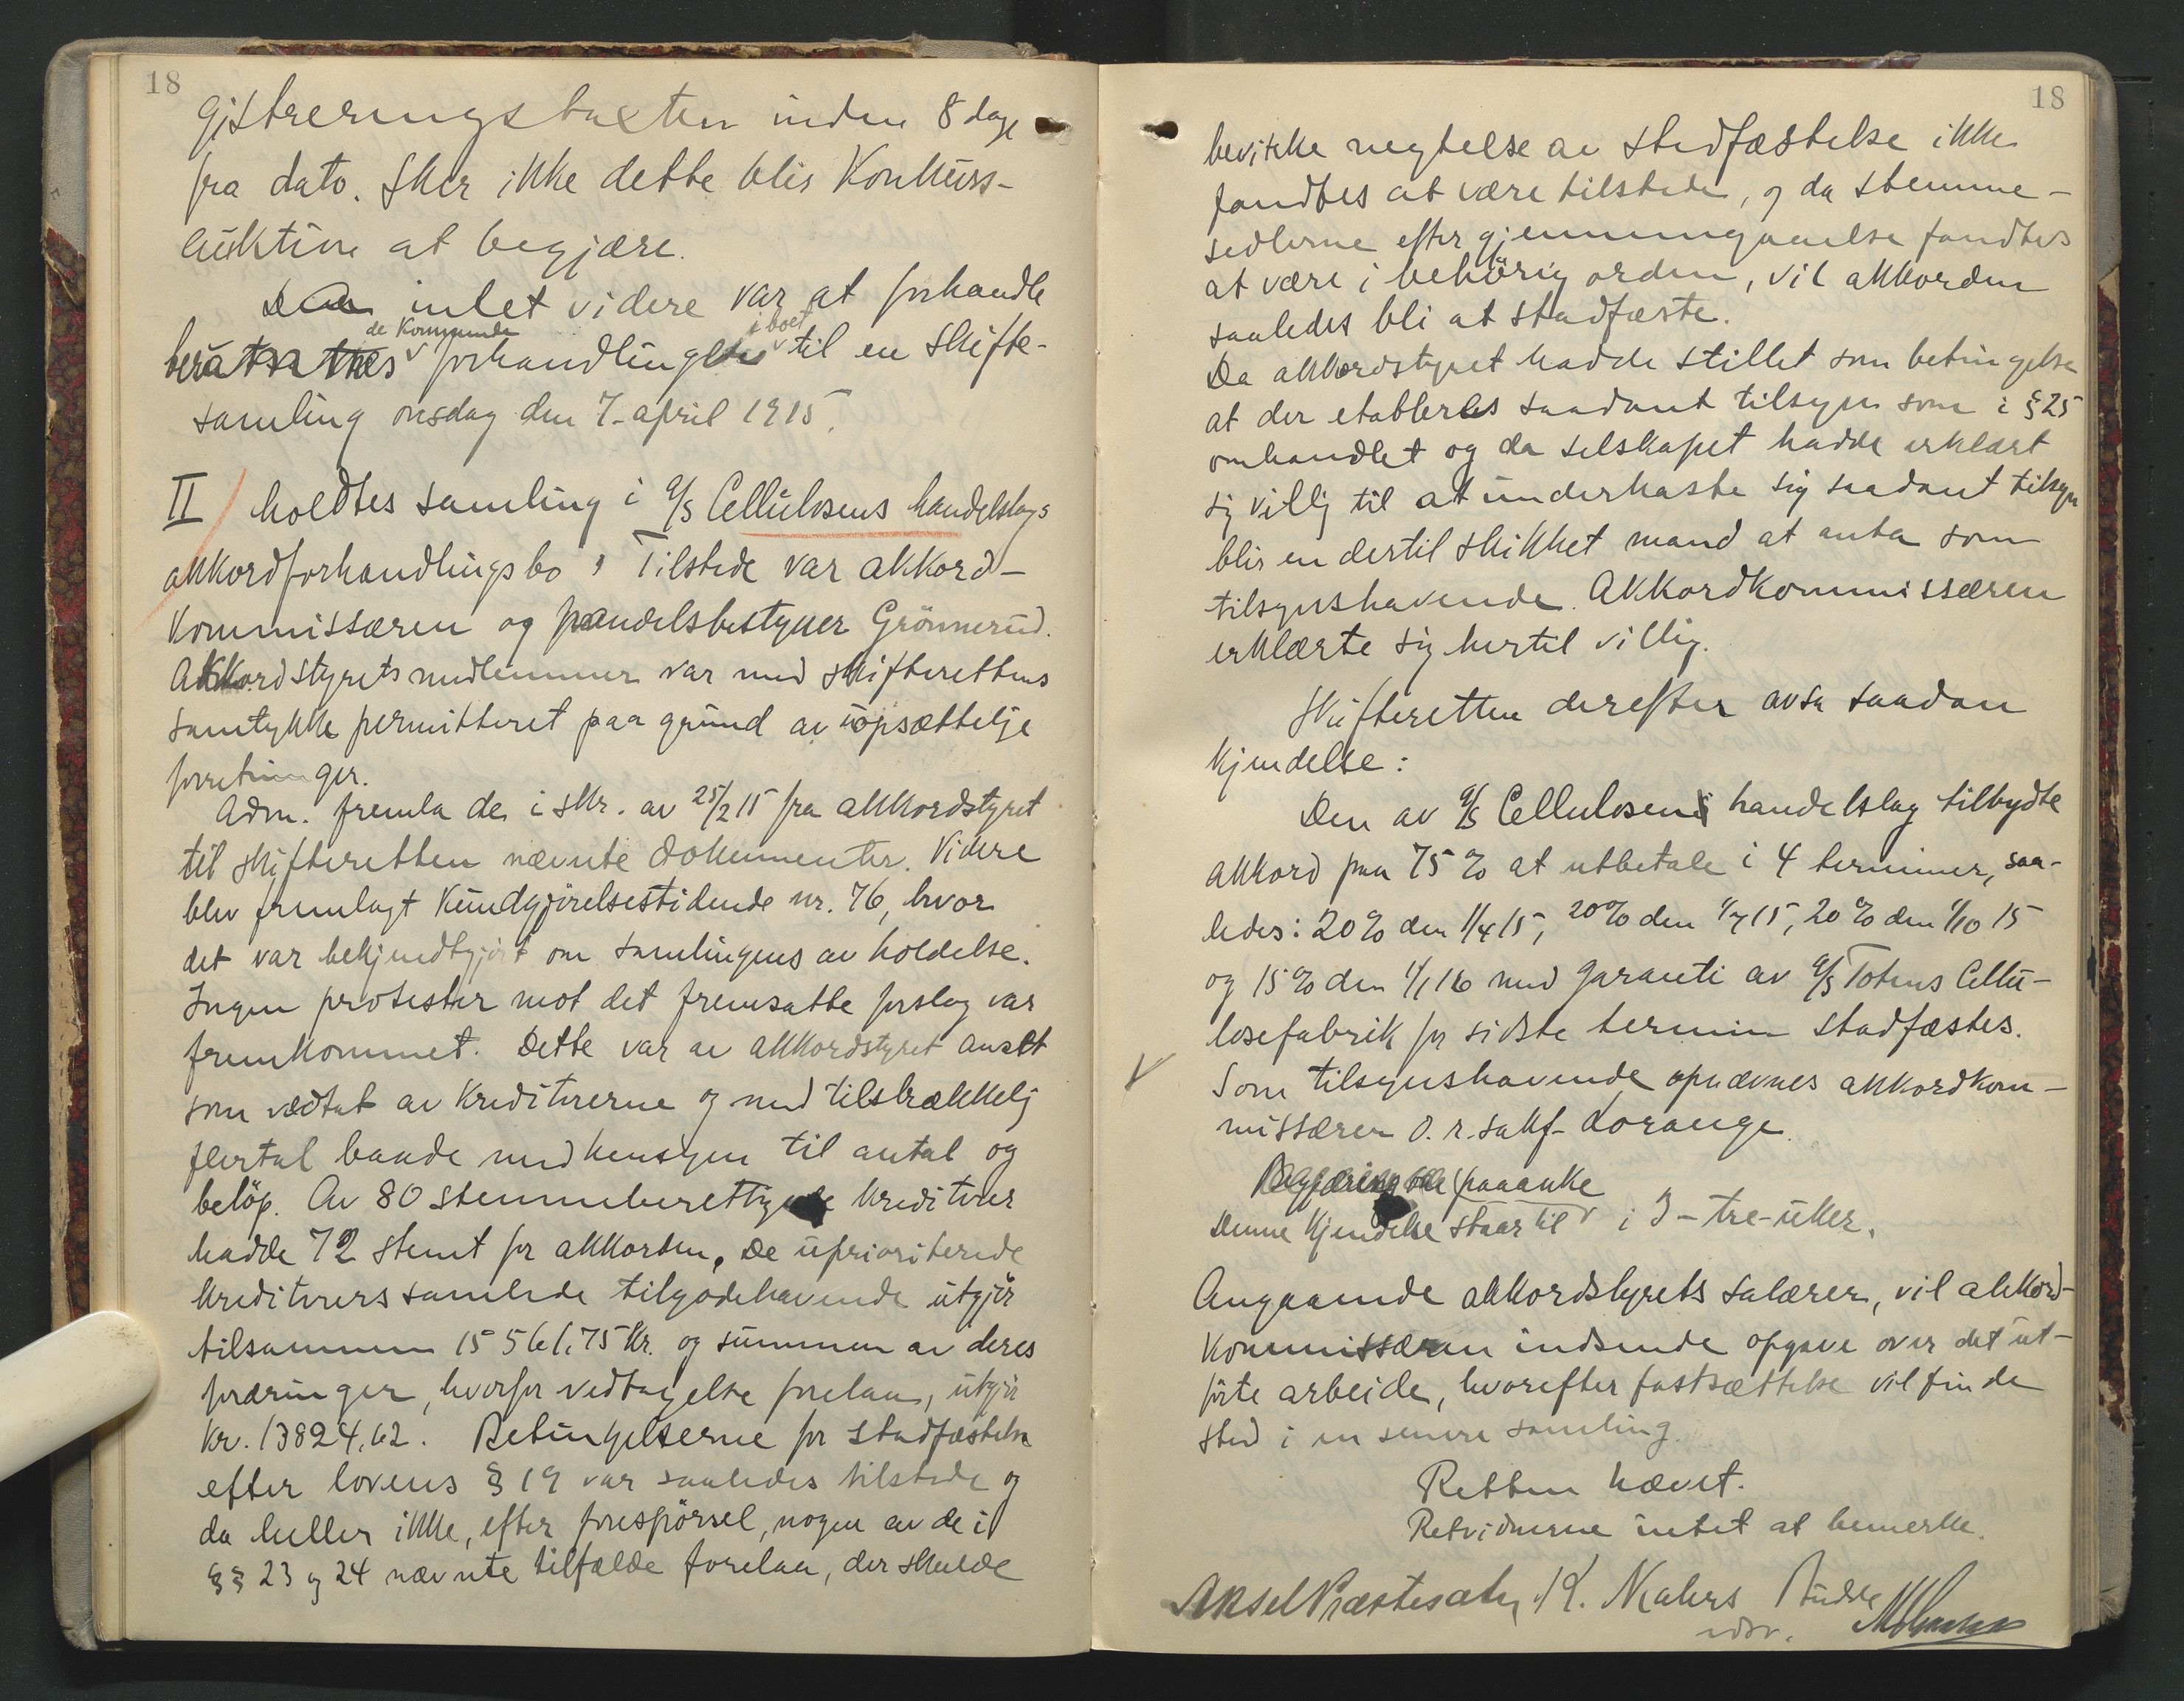 18
gistreringstaxten inden 8 dage
fra dato. Sker ikke dette blir Konkurs-
auktion at begjære.
Da intet videre var at forhandle
de kommende i boet
forhandlinger til en skifte-
samling onsdag den 7. april 1915.
II holdtes samling i A/S Cellulosens handelslags
akkordforhandlingsbo. Tilstede var akkord-
kommissæren og handelsbestyrer Grönnerud.
Akkordstyrets medlemmer var med skifterettens
samtykke permitteret paa grund av uopsættelige
forretninger.
Adm. fremla de i skr. av 25/2 15 fra akkordstyret
til skifteretten nævnte dokumenter. Videre
blev fremlagt Kundgjörelsestidende nr. 76, hvor
det var bekjendtgjört om samlingens avholdelse.
Ingen protester mot det fremsatte forslag var
fremkommet. Dette var av akkordstyret anset
som vedtat av kreditorerne og med tilstrækkelig
flertal baade med hensyn til antal og
belöp. Av 80 stemmeberettigede kreditorer
hadde 72 stemt for akkorden. De uprioriterede
kreditorers samlede tilgodehavende utgjör
tilsammen 15 561,75 Kr. og summen av deres
fordringer, hvorfor vedtagelse forelaa, utgjör
kr. 13824,62. Betingelserne for stadfæstelse
efter lovens § 19 var saaledes tilstede og
da heller ikke, efter forespörsel, nogen av de i
§§ 23 og 24 nævnte tilfælde forelaa, der skulde
18
bevirke negtelse av stadfæstelse ikke
fandtes at være tilstede, og da stemme-
sedlerne efter gjennemgaaelse fandtes
at være i behörig orden, vil akkorden
saaledes bli at stadfæste.
Da akkordstyret hadde stillet som betingelse
at der etableres saadant tilsyn som i § 25
omhandlet og da selskapet hadde erklært
sig villig til at underkaste sig saadant tilsyn
blir en dertil skikket mand at anta som
tilsynshavende. Akkordkommissæren
erklærte sig hertil villig.
Skifteretten derefter avsa saadan
kjendelse:
Den av A/S Cellulosens handelslag tilbydte
akkord paa 75 % at utbetale i 4 terminer, saa-
ledes: 20 % den 1/4 15, 20 % den 1/7 15, 20 % den 1/10 15
og 15 % den 1/1 16 med garanti av A/S Totens Cellu-
losefabrik for sidste termin stadfæstes.
Som tilsynshavende opnævnes akkordkom-
missæren o. r. sakf. Lorange.
paaanke
Denne kjendelse staar til i 3 - tre - uker.
Angaaende akkordstyrets salærer, vil akkord-
kommissæren indsende opgave over det ut-
förte arbeide, hvorefter fastsættelse vil finde
sted i en senere samling.
Retten hævet.
Retvidnerne intet at bemerke.
Aksel Præstesæter K. Budde
edsv.